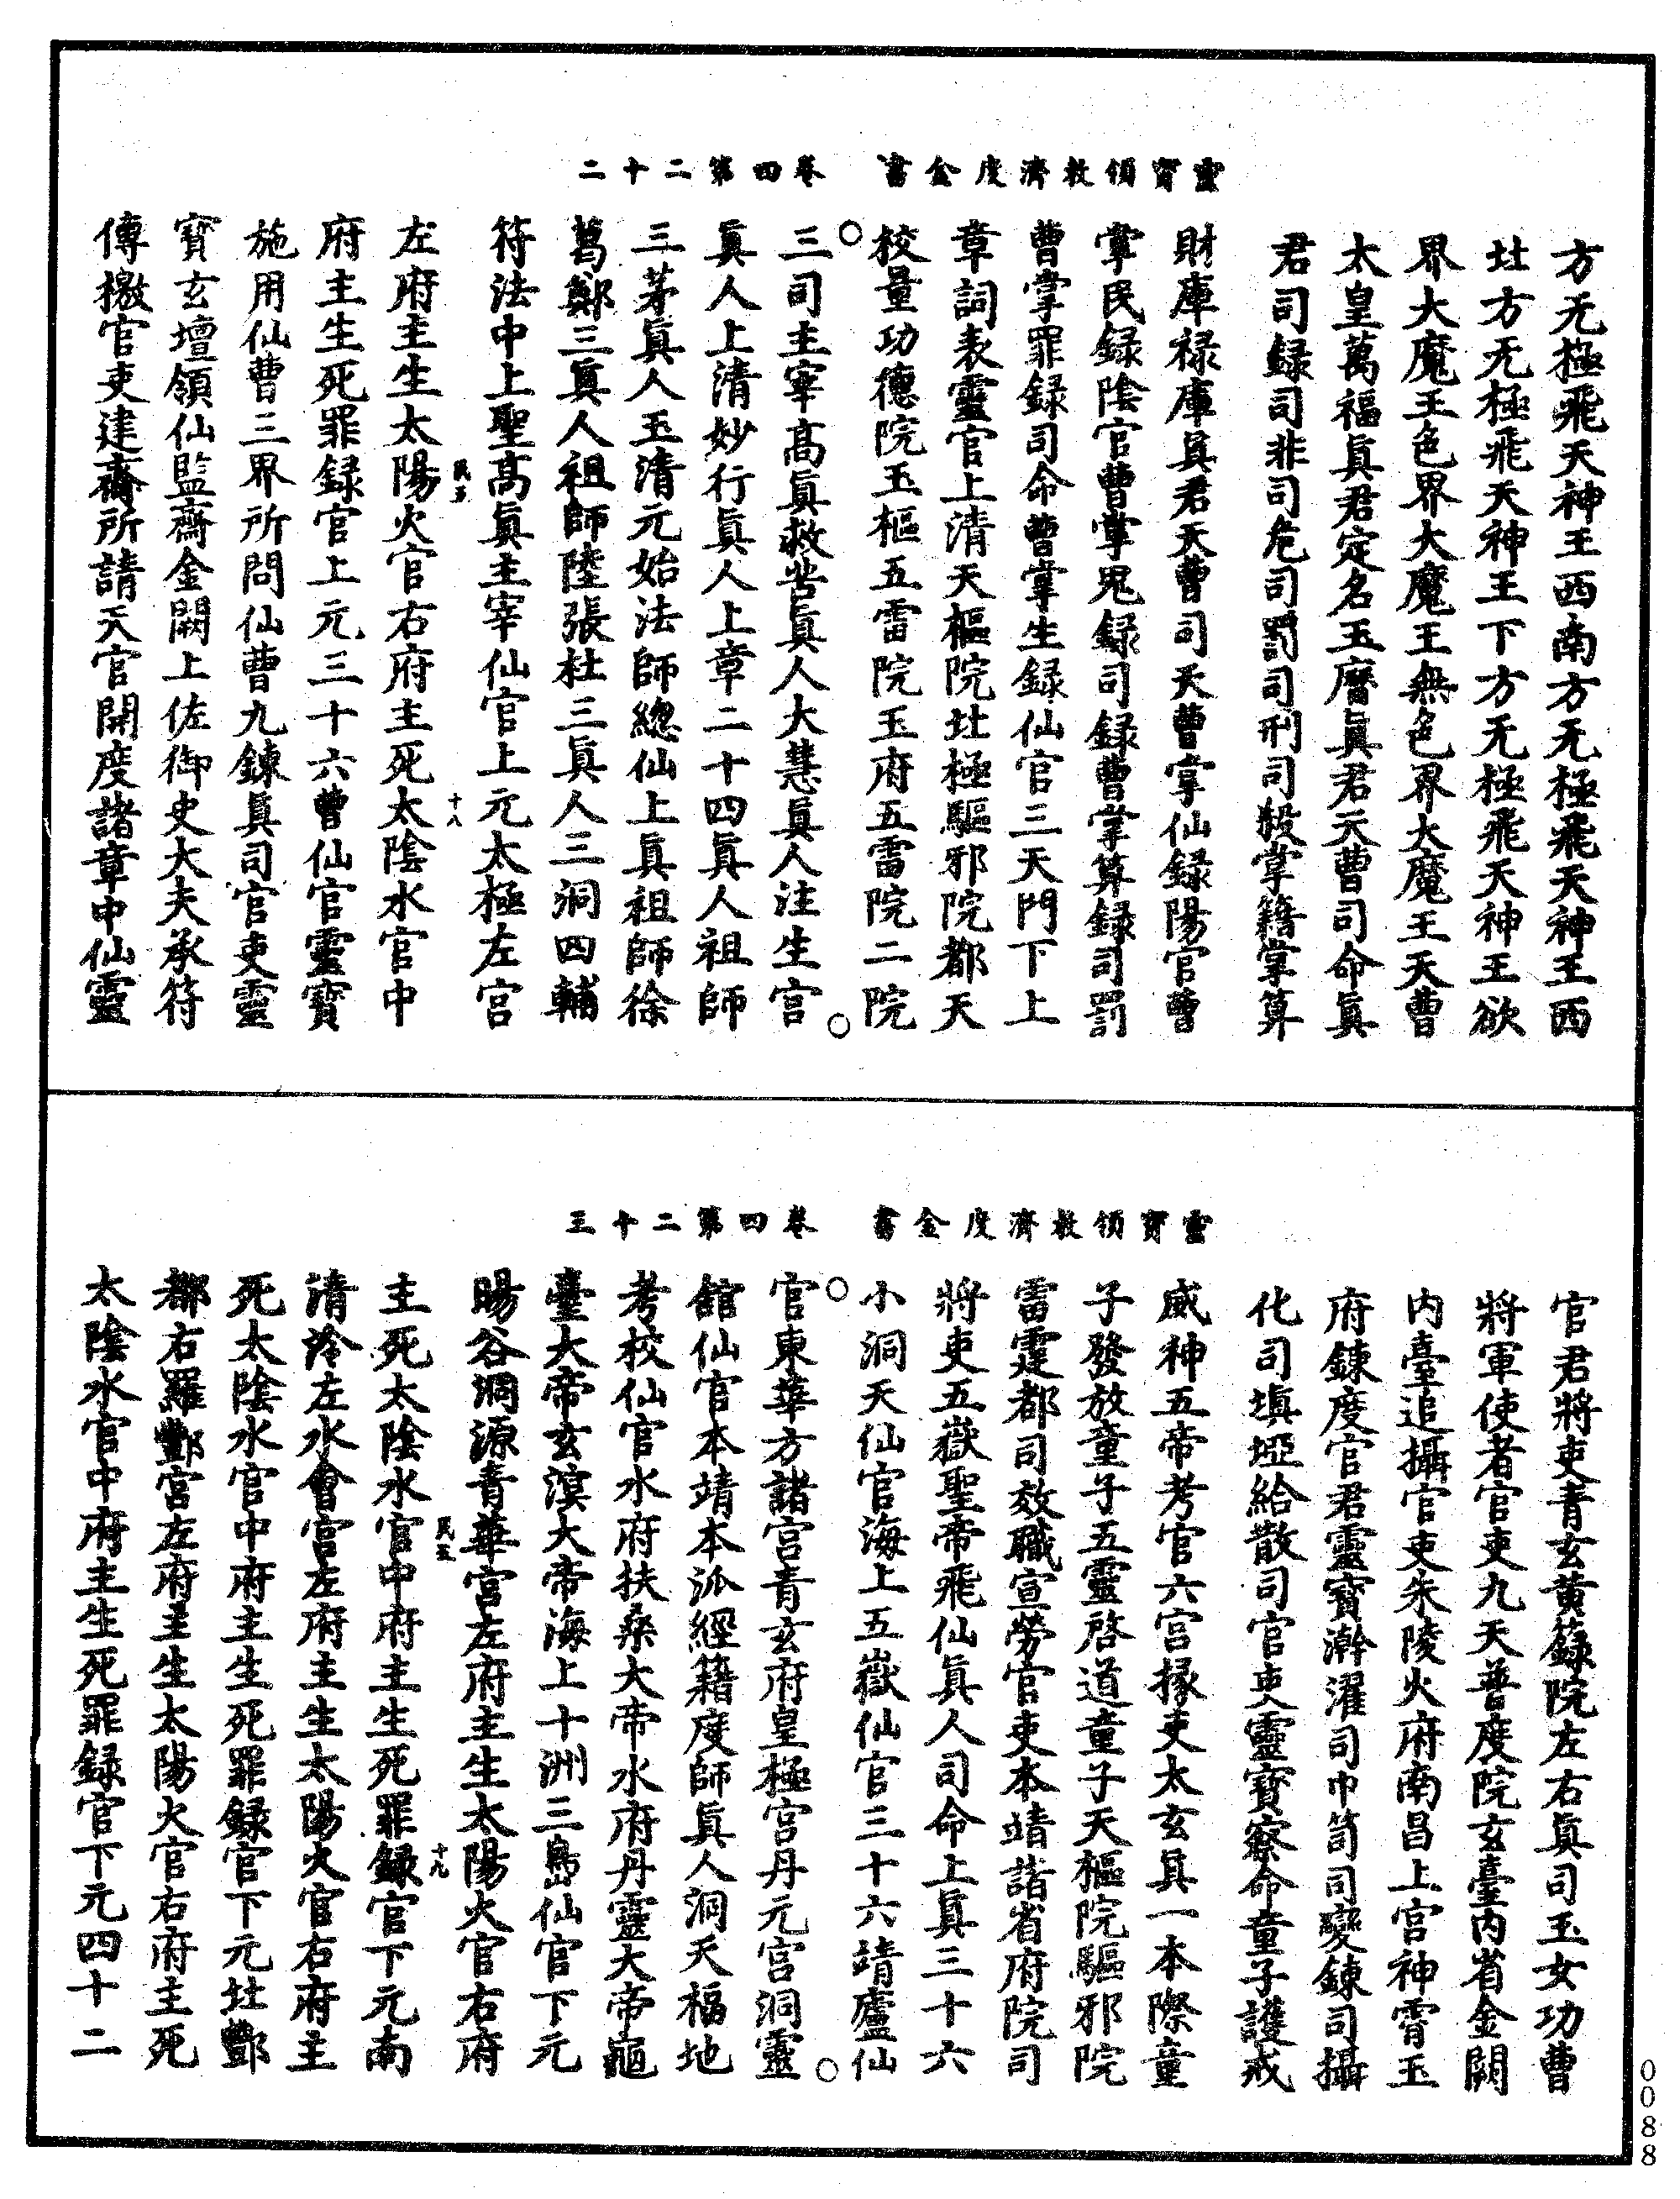 靈寶領教濟度金書　卷四第二十二
方无極飛天神王西南方无極飛天神王西
北方无極飛天神王下方无極飛天神王欲
界大魔王色界大魔王無色界大魔王天曹
太皇萬福眞君定名玉曆眞君天曹司命眞
君司録司非司危司罰司刑司殺掌籍掌算
財庫禄庫眞君天曹司天曹掌仙録陽官曹
掌民録陰官曹掌鬼録司録曹掌算録司罰
曹掌罪録司命曹曹掌生録仙官三天門下上
章詞表靈官上清天樞院北極驅邪院都天
校量功德院玉樞五雷院玉府五雷院二院
三司主宰高眞救苦眞人大慧眞人注生宫
眞人上清妙行眞人上章二十四眞人祖師
三茅眞人玉清元始法師總仙上眞祖師徐
葛鄭三眞人祖師陸張杜三眞人三洞四輔
符法中上聖高眞主宰仙官上元太極左宫
民五　十八
左府主生太陽火官右府主死太陰水官中
府主生死罪録官上元三十六曹仙官靈寳
施用仙曹三界所問仙曹九鍊眞司官吏靈
寳玄壇領仙監齋金闕上佐御史大夫承符
傳檄官吏建齋所請天官開度諸章中仙靈
靈寶領教濟度金書　卷四第二十三
官君將吏青玄黄籙院左右眞司玉女功曹
將軍使者官吏九天普度院玄臺内省金闕
内臺追攝官吏朱陵火府南昌上宫神霄玉
府鍊度官君靈寳澣濯司巾笥司變鍊司攝
化司塡埡給散司官吏靈寳察命童子護戒
威神五帝考官六宫掾吏太玄眞一本際童
子發放童子五靈啓道童子天樞院驅邪院
雷霆都司效職宣勞官吏本靖諸省府院司
將吏五嶽聖帝飛仙眞人司命上眞三十六
小洞天仙官海上五嶽仙官三十六靖廬仙
官東華方諸宫青玄府皇極宫丹元宫洞靈
舘仙官本靖本派經籍度師眞人洞天福地
考校仙官水府扶桑大帝水府丹靈大帝龜
臺大帝玄漠大帝海上十洲三島仙官下元
暘谷洞源青華宫左府主生太陽火官右府
民五　十九
主死太陰水官中府主生死罪録官下元南
清泠左水會宫左府主生太陽火官右府主
死太陰水官中府主生死罪録官下元北酆
都右羅酆宫左府主生太陽火官右府主死
太陰水官中府主生死罪録官下元四十二
0088